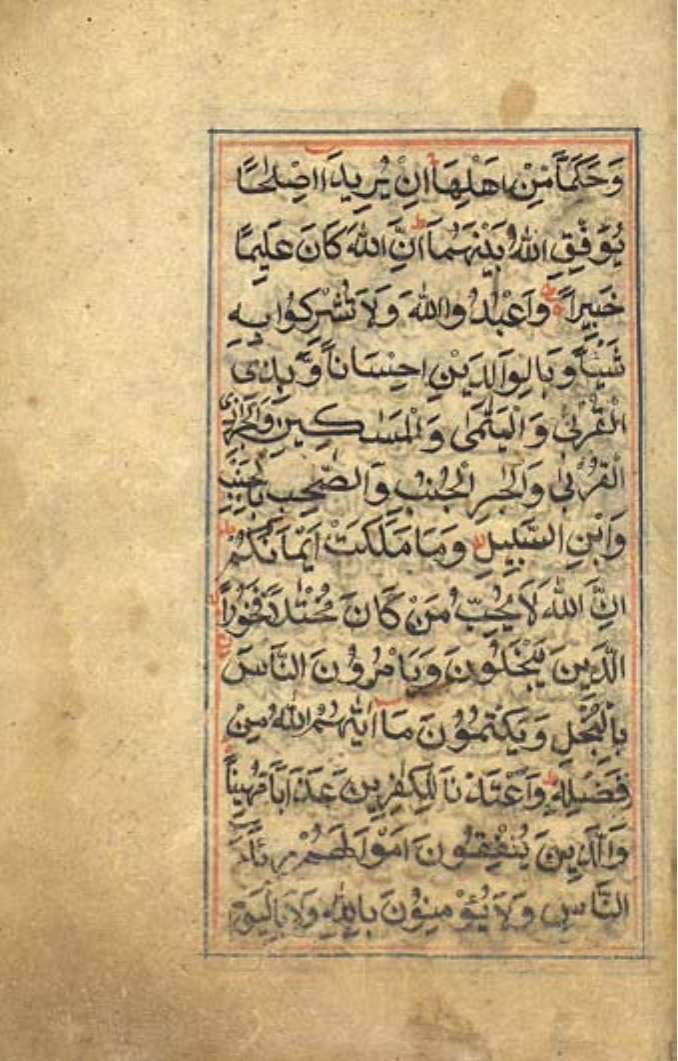 وَحَكَمًا مِّنْ اَهْلِهَا اِنْ يُّرِيدَا اِصْلٰحًا
يُوَفِّقِ اللّٰهُ بَيْنَهُمَا اِنَّ اللّٰهَ كَانَ عَلِيمًا
خَبِيرًا وَاعْبُدُوا اللّٰهَ وَلَا تُشْرِكُوا بِهٖ
شَيْئًا وَّبِالْوَالِدَيْنِ اِحْسَانًا وَّبِذِى
الْقُرْبٰى وَالْيَتٰمٰى وَالْمَسٰكِينِ وَالْجَارِ ذِى
الْقُرْبٰى وَالْجَارِ الْجُنُبِ وَالصَّٰحِبِ بِالْجَنْبِ
وَابْنِ السَّبِيلِ وَمَا مَلَكَتْ اَيْمَانُكُمْ
اِنَّ اللّٰهَ لَا يُحِبُّ مَنْ كَانَ مُخْتَالًا فَخُوْرًا
الَّذِينَ يَبْخَلُونَ وَيَاْمُرُونَ النَّاسَ
بِالْبُخْلِ وَيَكْتُمُوْنَ مَا اٰتٰىهُمُ اللّٰهُ مِنْ
فَضْلِهٖ وَاَعْتَدْنَا لِلْكٰفِرِينَ عَذَابًا مُّهِينًا
وَالَّذِينَ يُنْفِقُونَ اَمْوَالَهُمْ رِئَآءَ
النَّاسِ وَلَا يُؤْمِنُوْنَ بِاللّٰهِ وَلَا بِالْيَوْمِ